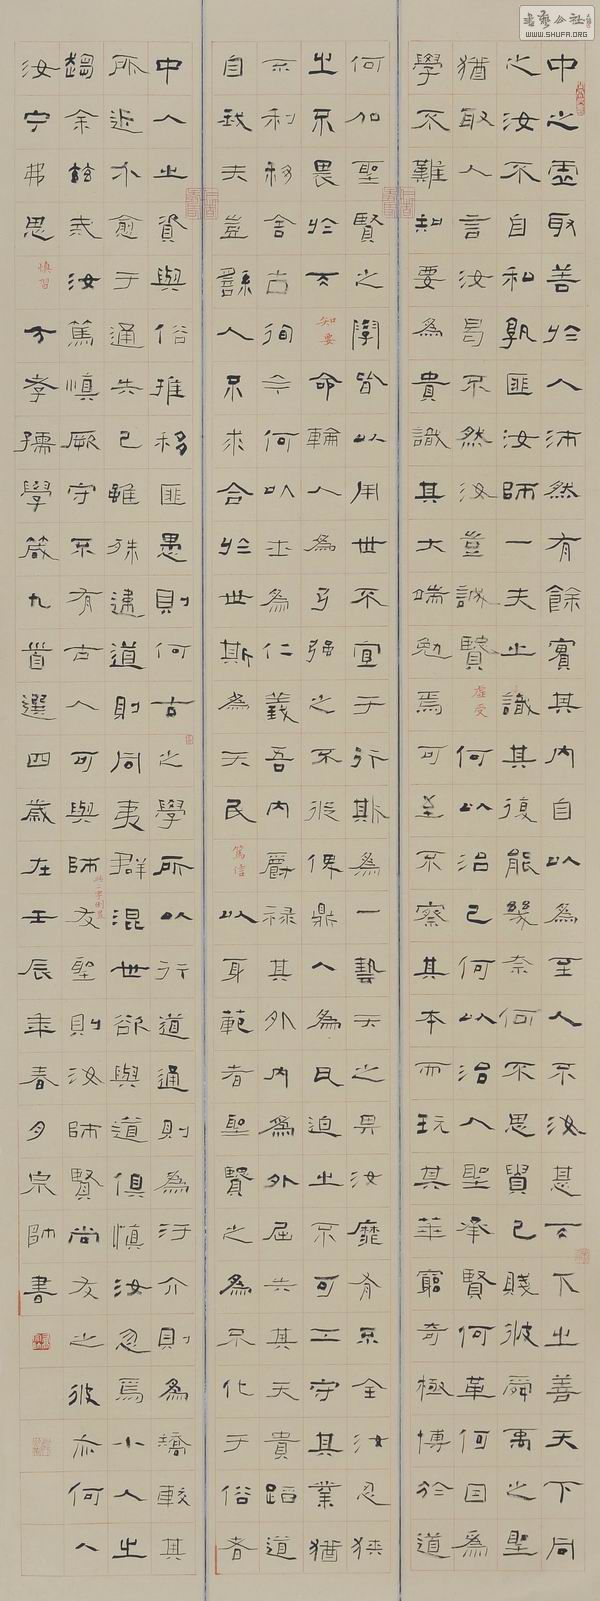 中之虛取善於人沛然有餘實其內自以為至人不汝甚天下之善天下同
之汝不自和孰匪汝師一夫之識其復能幾奈何不思貿己賤彼舜禹之聖
猶取人言汝曷不然汝豈誠賢虛受何以治己何以治人聖承賢何革何因為
學不難知要為貴識其大端勉焉可至不察其本而玩其華窮奇極博於道
何加聖賢之學皆以用世不宜于行斯為一藝天之畀汝靡有不全汝忍狹
之不畏於天知要命輪人為弓強之不從俾鼎人為瓦迫之不可工守其業猶
不利移舍古徇今何以士為仁義吾內爵祿其外內為外屈失其天貴蹈道
自我夫豈繇人不求合於世斯為天民篤信以身範者聖賢之為不化于俗者
中人之資與俗推移匪愚則何古之學所以行道通則為汙介則為矯較其
所近介愈于通失已雖殊違道則同夷群混世欲與道俱慎汝忽焉小人之
趨余茲戒汝篤慎厥守不有古人可與師友聖則汝師賢尚友之彼亦何人
汝宁弗思慎習方孝孺學箴九首選四歲在壬辰年春月宗帥書
WWW.SHUFA.ORG